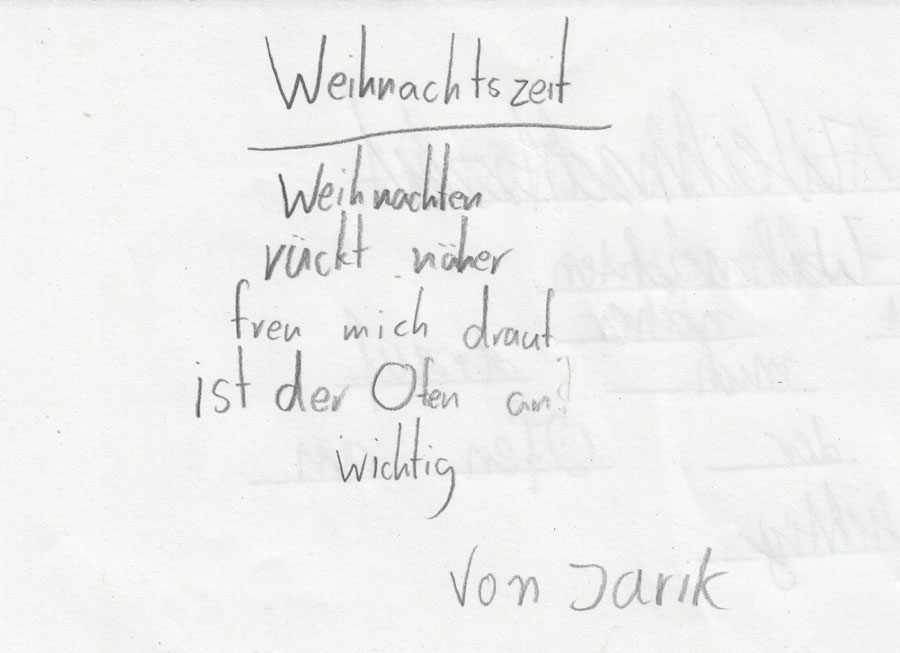 Weihnachtszeit
Weihnachten
rückt näher
freu mich drauf
ist der Ofen an?
wichtig
Von Jarik